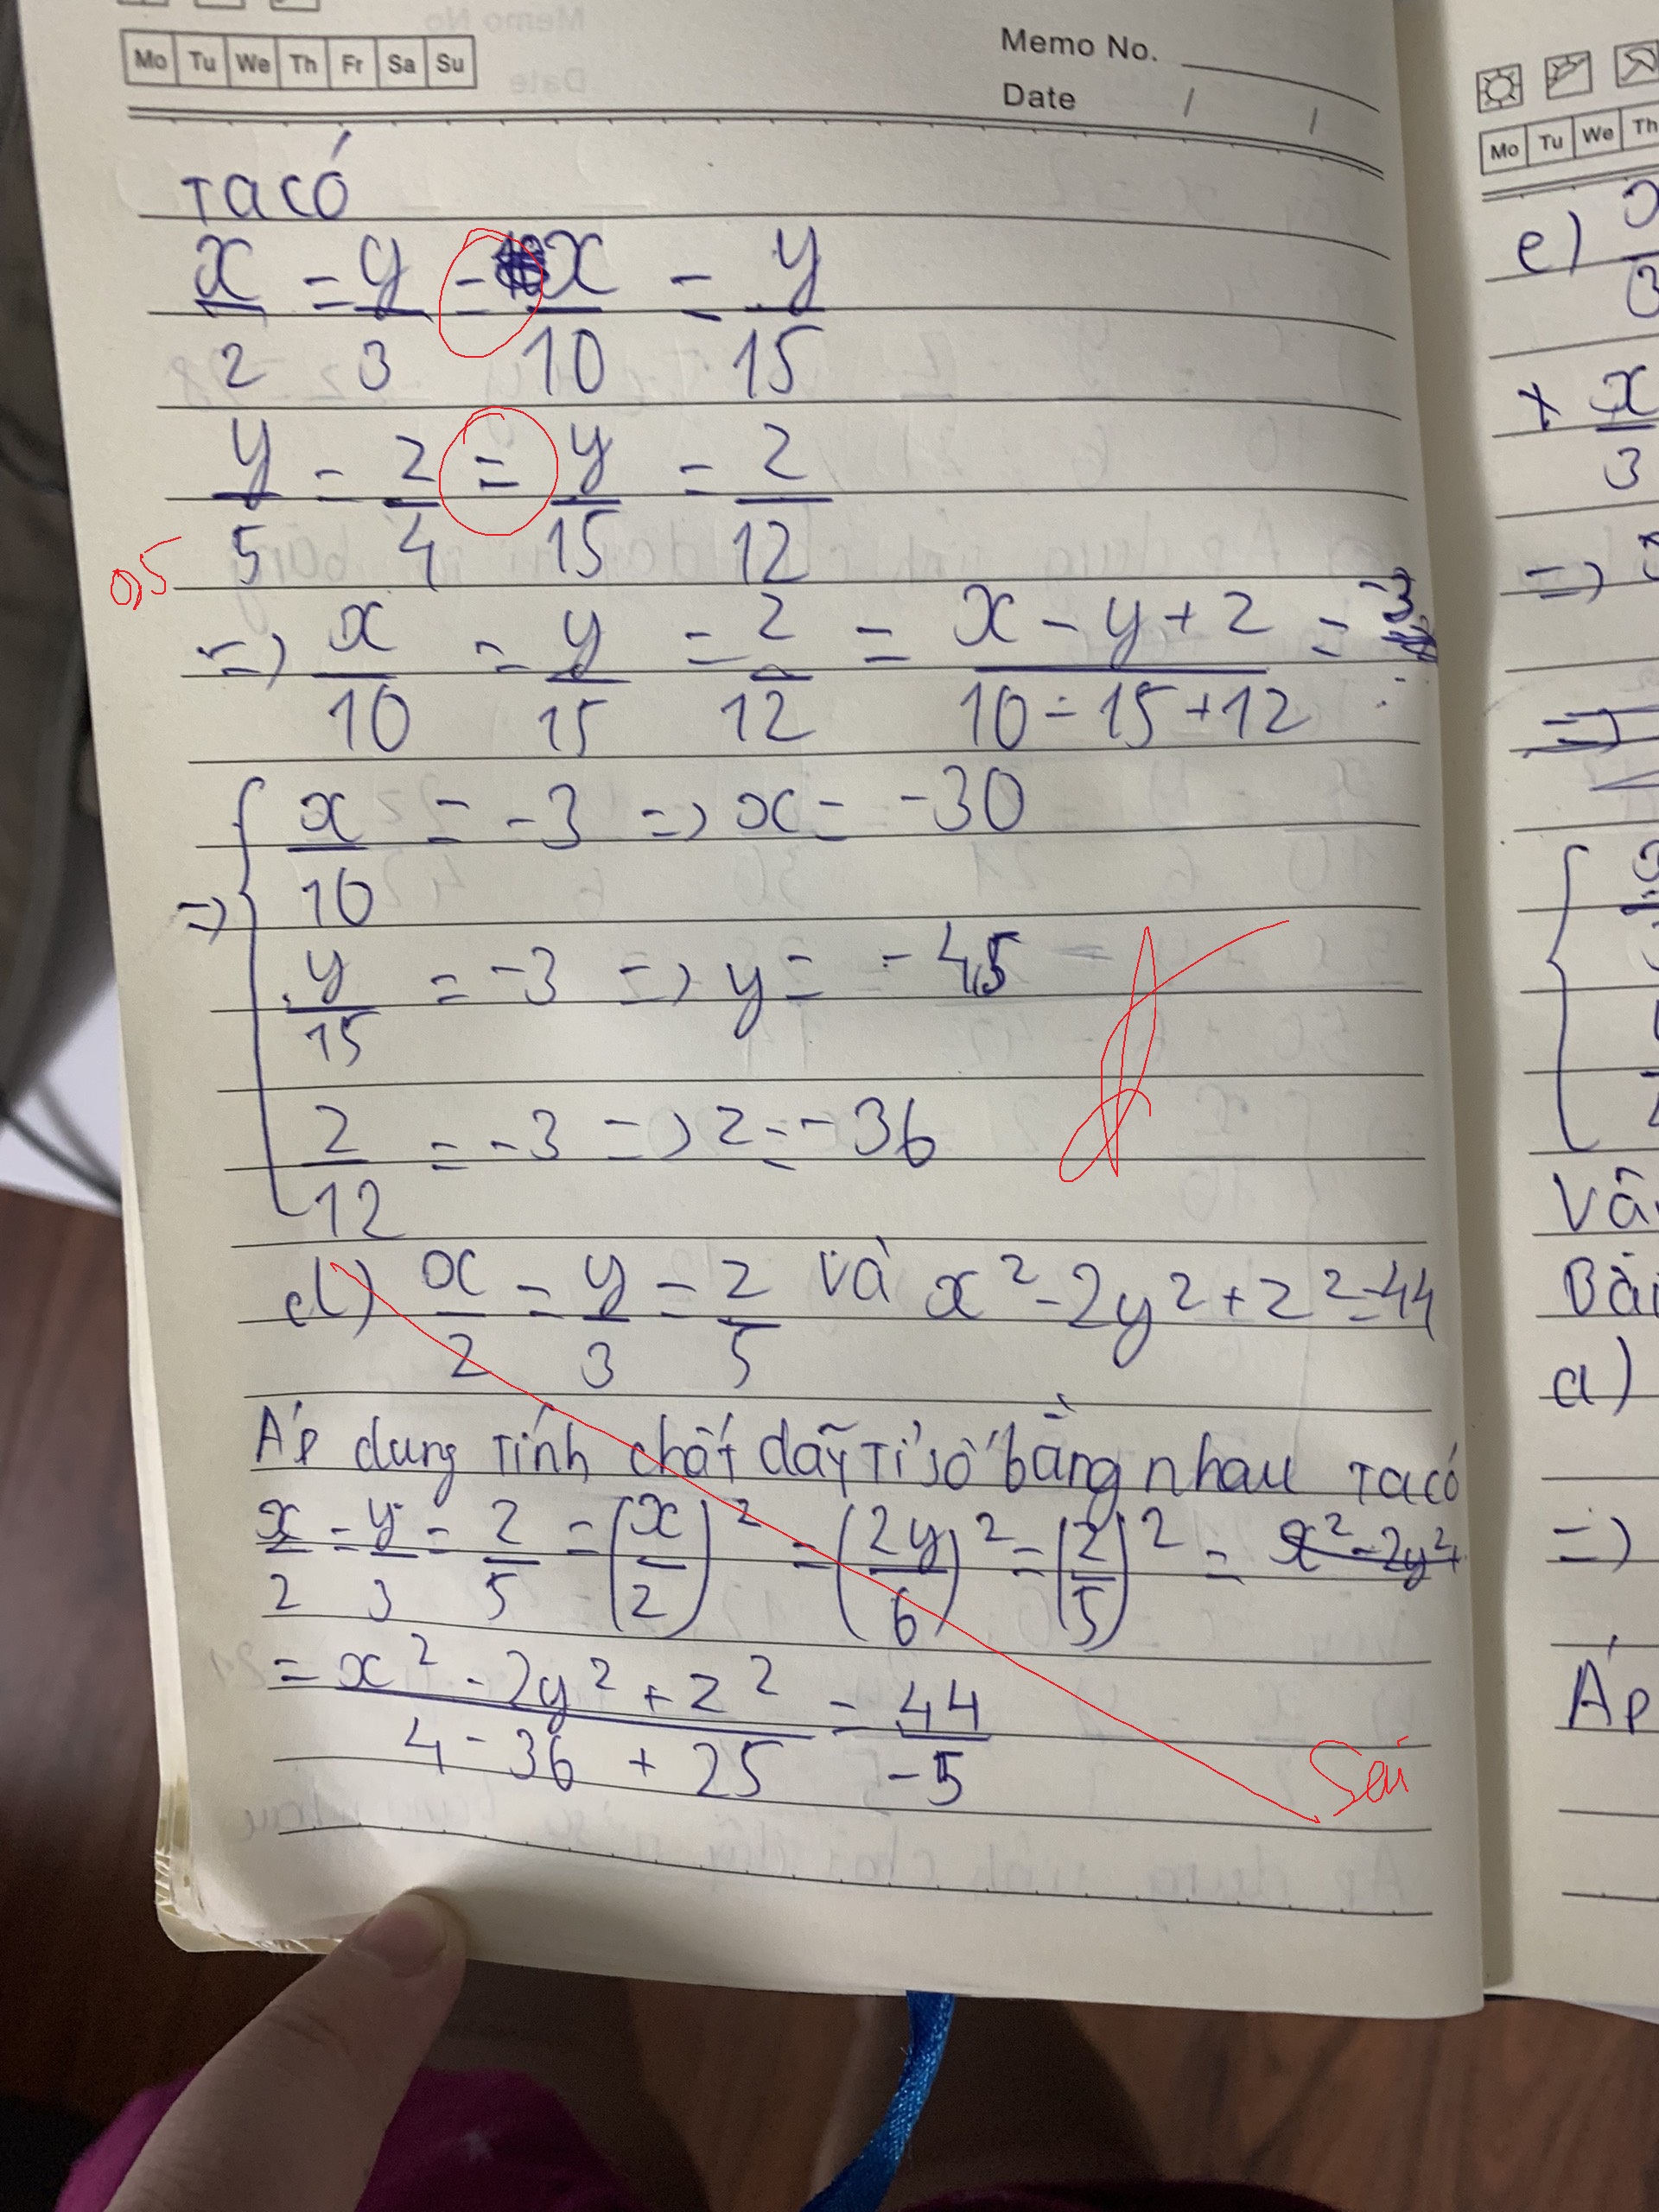 Mo Tu We Th Fr Sa Su
Memo No.
Date / /
Ta có
x/2 = y/3 = x/10 = y/15
y/5 = z/4 = y/15 = z/12
0,5
=> x/10 = y/15 = z/12 = x - y + z / 10 - 15 + 12 = -3
=> { x/10 = -3 => x = -30
y/15 = -3 => y = -45
z/12 = -3 => z = -36
d) x/2 = y/3 = z/5 và x² - 2y² + z² = 44
Áp dung tính chất dãy tỉ số bằng nhau ta có
x/2 = y/3 = z/5 = (x/2)² = (2y/6)² = (z/5)² = x² - 2y² +
= x² - 2y² + z² / 4 - 36 + 25 = 44/-5
Sai
Mo Tu We Th
e)
+ x/3
=>
Bài
a)
=>
Áp